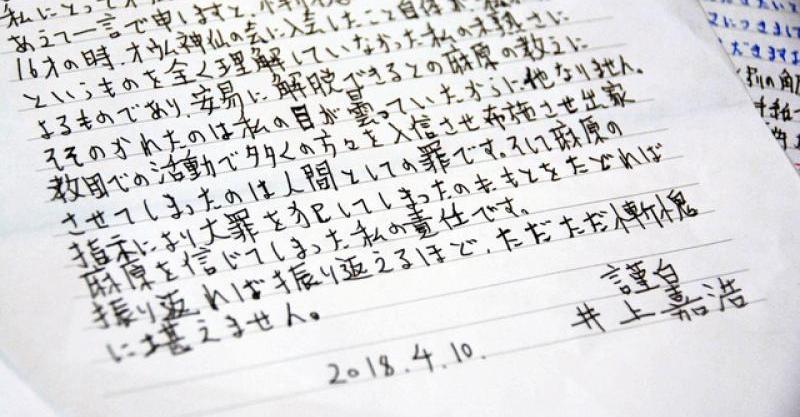 私にとって
あえて一言で申しますと、慚愧
16才の時、オウム神仙の会に入会したこと自体が
というものを全く理解していなかった私の未熟さに
よるものであり、安易に解脱できるとの麻原の教えに
そそのかれたのは私の目が曇っていたからに他なりません。
教団での活動で多くの方々を入信させ布施させ出家
させてしまったのは人間としての罪です。そして麻原の
指示により大罪を犯してしまったのももとをたどれば
麻原を信じてしまった私の責任です。
振り返れば振り返えるほど、ただただ慚愧
に堪えません。
謹白
2018.4.10.
井上嘉浩